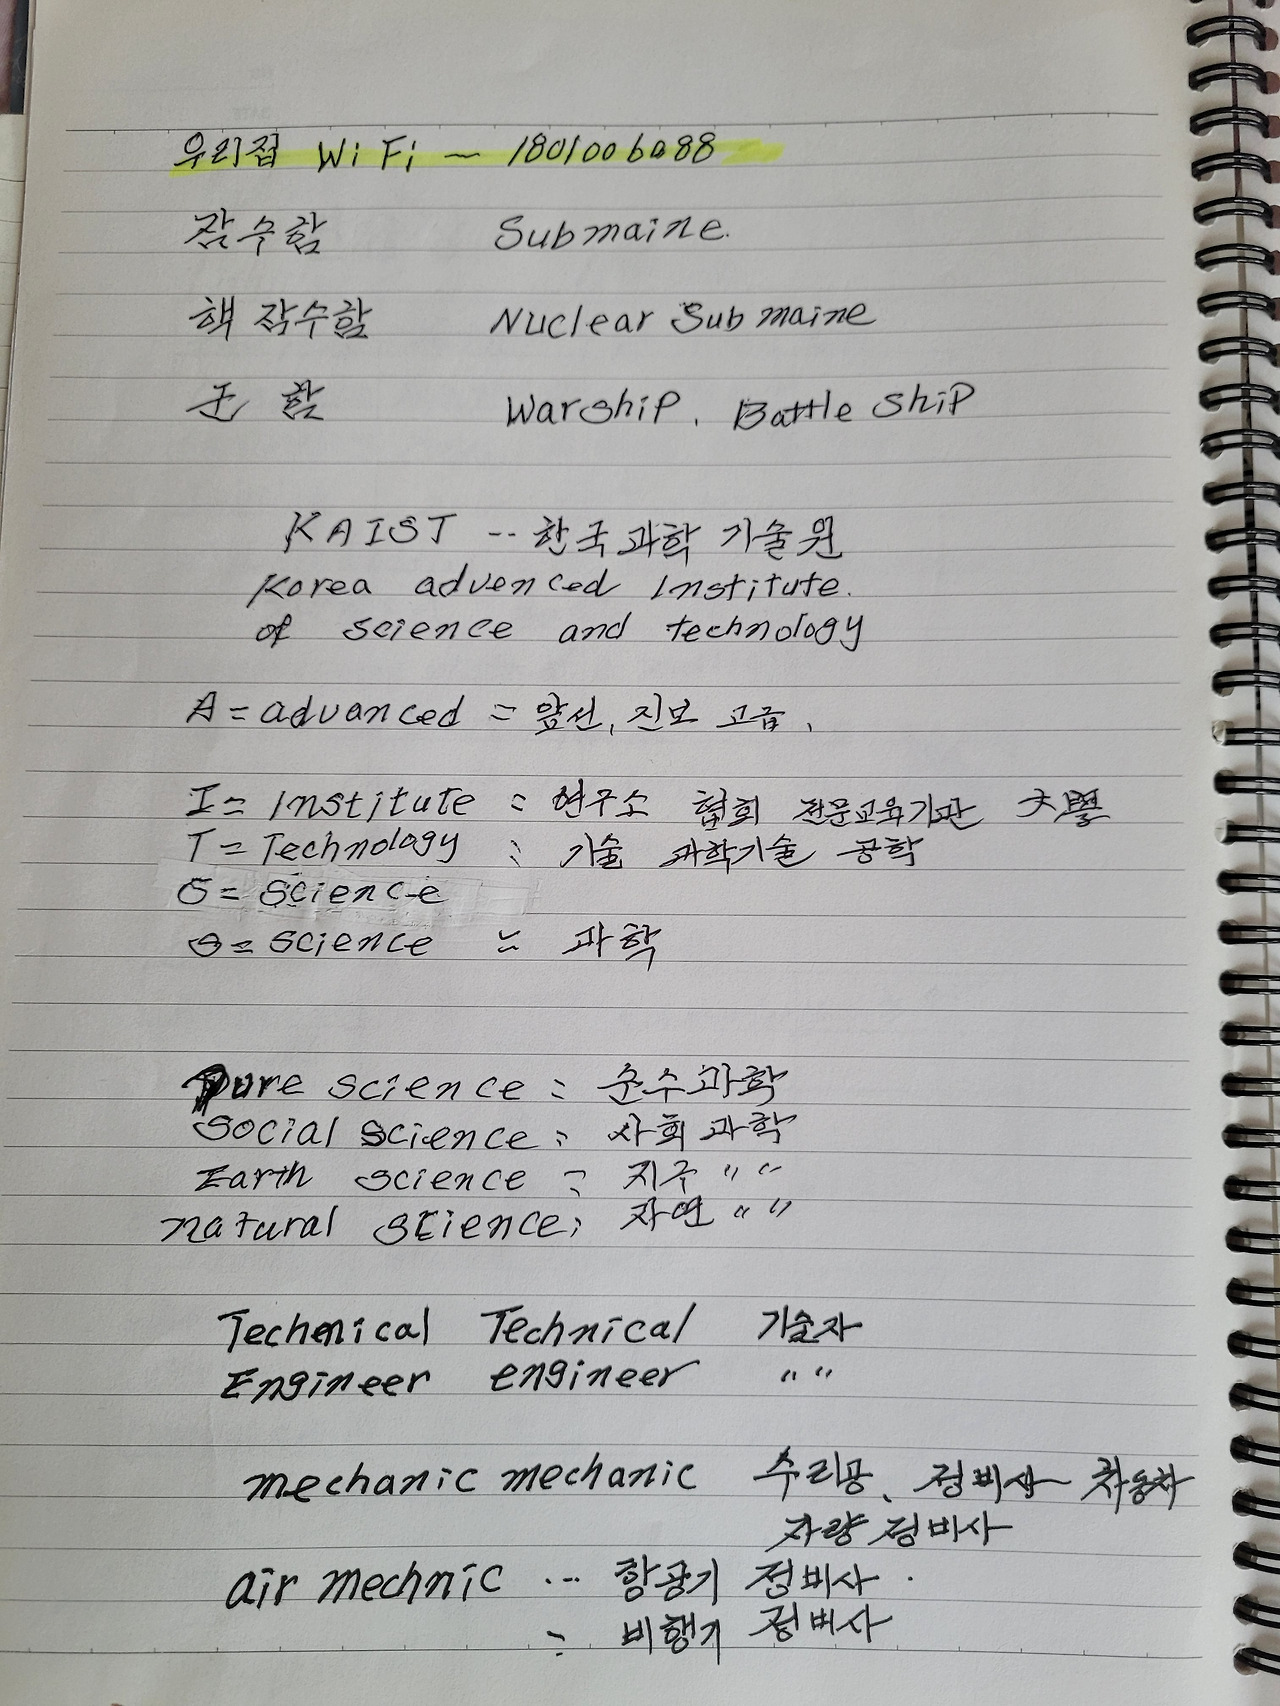 우리집 WiFi ~ 1801006088
잠수함 Submaine.
핵 잠수함 Nuclear Submaine
군 함 Warship. Battle ship
KAIST -- 한국과학 기술원
Korea advenced Institute.
of science and technology
A = advanced = 앞선, 진보 고급.
I = Institute = 연구소 협회 전문교육기관 大學
T = Technology : 기술 과학기술 공학
S = Science
S = Science = 과학
Pure science = 순수과학
Social science = 사회과학
Earth science = 지구 " "
natural science; 자연 " "
Technical Technical 기술자
Engineer engineer " "
mechanic mechanic 수리공, 정비사 자동차
차량 정비사
air mechnic --- 항공기 정비사.
= 비행기 정비사